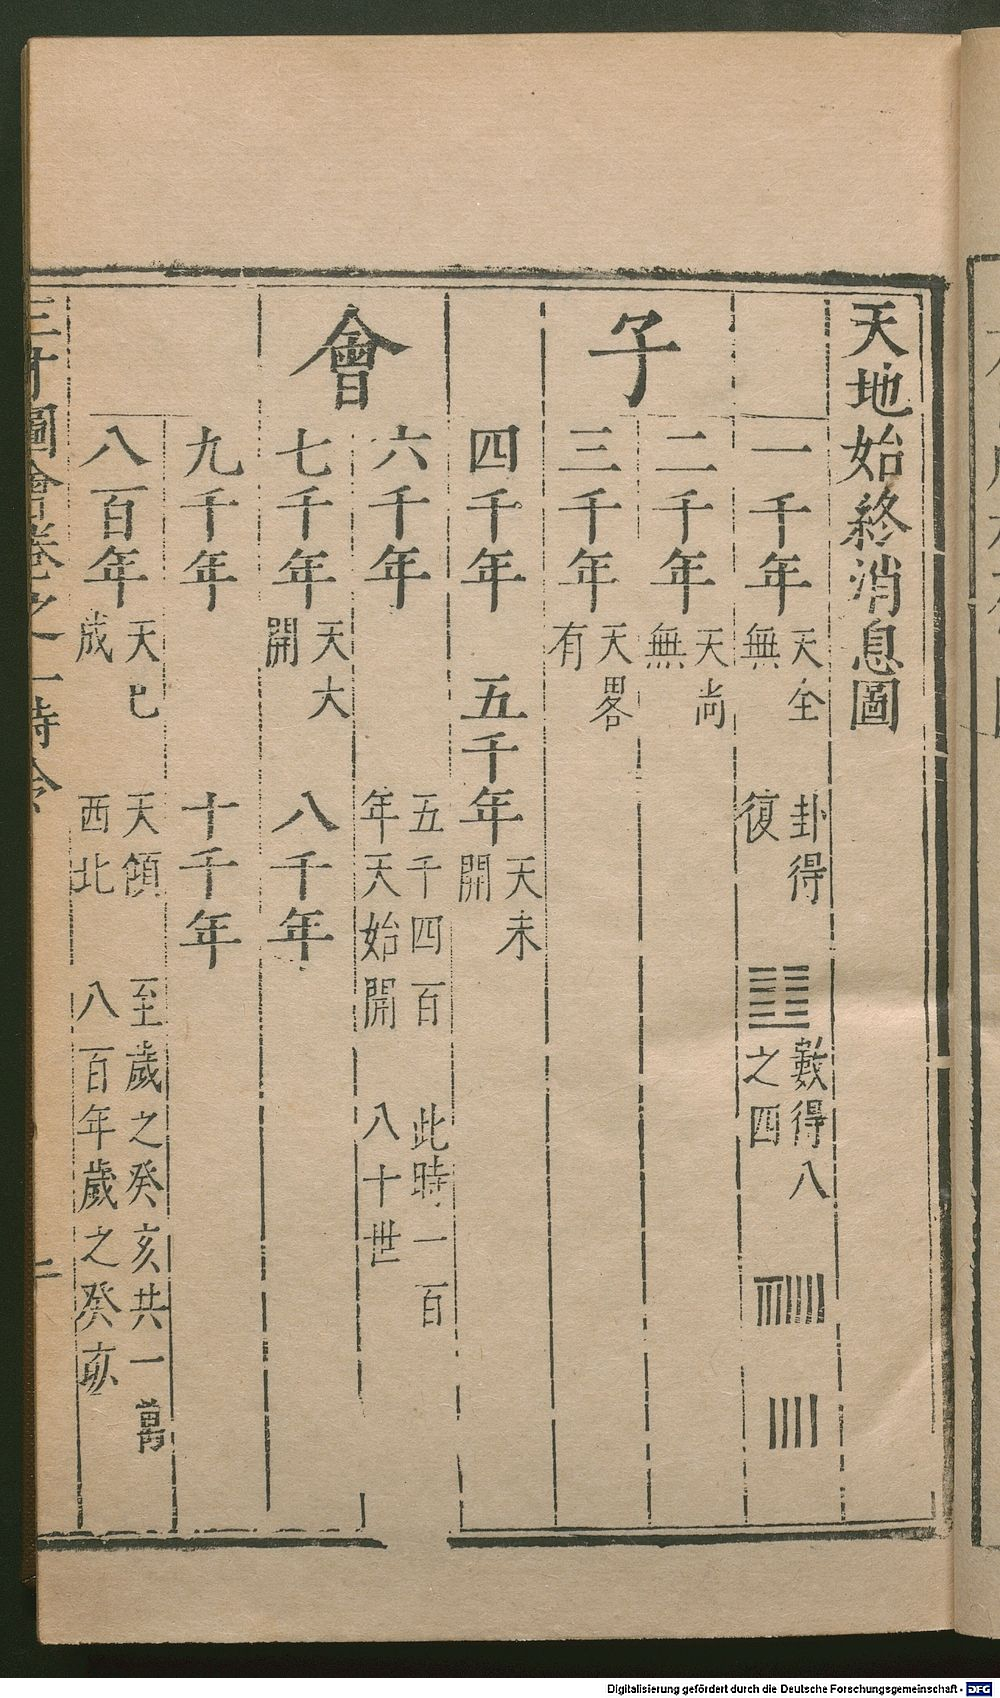 天地始終消息圖
子
會
一千年
天全
無
卦得
復
數得八
之四
二千年
天尚
無
三千年
天畧
有
四千年
五千年
天未
開
六千年
五千四百
年天始開
此時一百
八十世
七千年
天大
開
八千年
九千年
十千年
八百年
天已
成
天傾
西北
至歲之癸亥共一萬
八百年歲之癸亥
三才圖會卷之一時令
二
Digitalisierung gefördert durch die Deutsche Forschungsgemeinschaft - DFG